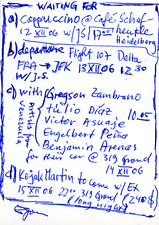 WAITING FOR
a) cappuccino @ Café Schaf-
heutle
12 XII 06 w/ JS / 17:00 Heidelberg
b) departure Flight 107 Delta
FRA → JFK 13 XII 06 12:30
w/ J.S.
c) with Gregson Zambrano
Julio Diaz 10.05
Victor Asuaje
Engelbert Peña
Benjamin Arenas
for their car @ 319 Grand
14 XII 06
d) Kojak Martin to come w/ EK
15 XII 06 22:00 319 Grand
(long night)